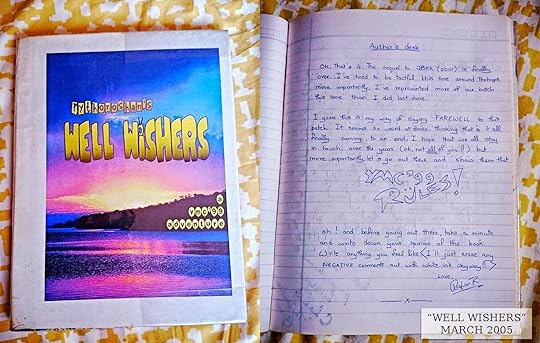 Pythoroshan's
WELL WISHERS
a
ymc'99
adventure
Author's desk
Oh. That's it. The sequel to JBKK (2001) is finally
over. I've tried to be tactful this time around. Perhaps,
more importantly, I've represented more of our batch
this time than I did last time.
I guess this is my way of saying FAREWELL to this
batch. It seems so weird at times, thinking that is it all
finally coming to an end. I hope that we all stay
in touch over the years (oh, not all of you!!) but
more importantly let's go out there and show them that
YMC'99
RULES!
oh! and before going out there, take a minute
and write down your opinion of the book.
Write anything you feel like (I'll just erase any
NEGATIVE comments out with white ink anyway!)
Love,
x
"WELL WISHERS"
MARCH 2005